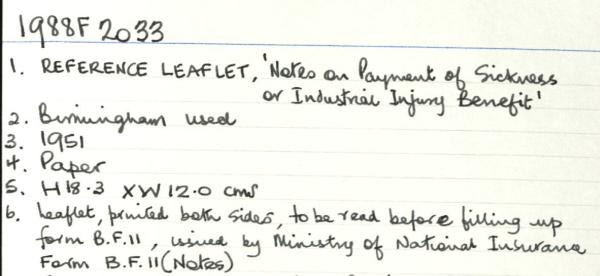 1988F 2033
1. REFERENCE LEAFLET, 'Notes on Payment of Sickness
or Industrial Injury Benefit'
2. Birmingham used
3. 1951
4. Paper
5. H 18.3 X W 12.0 cms
6. Leaflet, printed both sides, to be read before filling up
form B.F.11, issued by Ministry of National Insurance
Form B.F.11 (Notes)